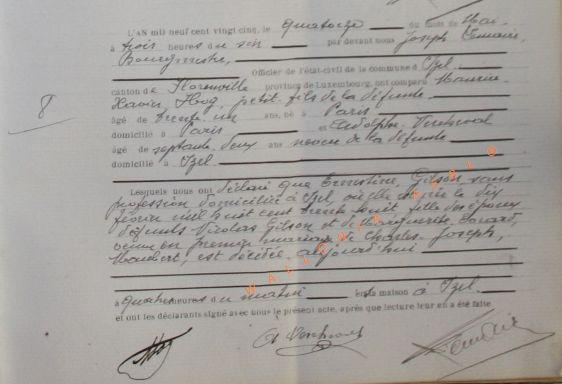 8
L'AN mil neuf cent vingt cinq, le quatorze du mois de Mai
à trois heures du soir par devant nous Joseph Lemaire,
Bourgmestre,
Officier de l'état-civil de la commune d'Izel,
canton de Florenville province de Luxembourg, ont comparu Maurice
Xavier Hog, petit-fils de la défunte
âgé de trente un ans, né à Paris
domicilié à Paris et Adolphe
âgé de septante deux ans neveu de la défunte
domicilié à Izel
Lesquels nous ont déclaré que Ernestine Gilson sans
profession domiciliée à Izel, où elle est née le dix
février mil huit cent trente huit fille des époux
défunts Nicolas Gilson et de Marguerite
veuve en premier mariage de Charles Joseph,
est décédée aujourd'hui
à quatre heures du matin en sa maison à Izel.
et ont les déclarants signé avec nous le présent acte, après que lecture leur en a été faite